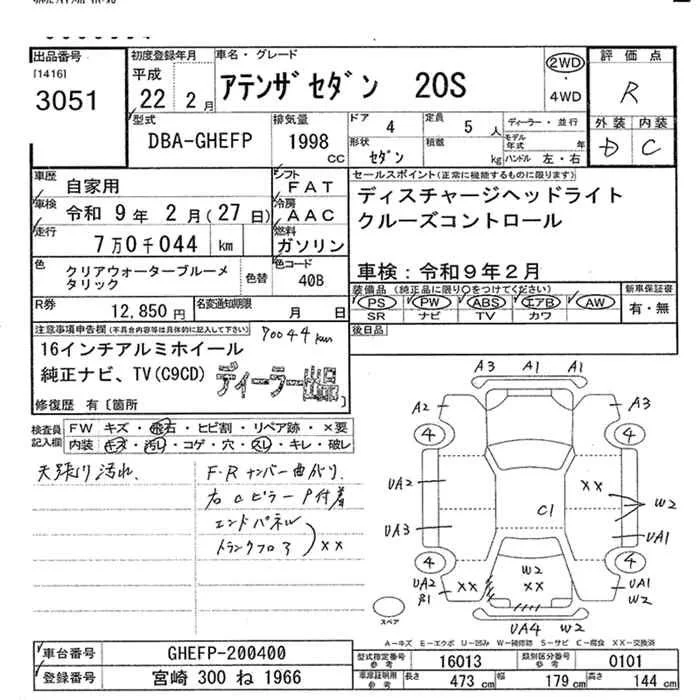 出品番号 初度登録年月 車名・グレード 評価点
[1416] 平成 アテンザセダン 20S 2WD R
3051 22 2月 ・4WD
型式 排気量 ドア 4 定員 5人 ディーラー・並行 外装 内装
DBA-GHEFP 1998cc 形状 セダン 積載 kg モデル年式 年 D C
ハンドル 左・右
車歴 自家用 シフト FAT セールスポイント(正常に機能するものに限ります)
車検 令和 9年 2月(27日) 冷房 AAC ディスチャージヘッドライト
走行 7万0千044 km 燃料 ガソリン クルーズコントロール
色 クリアウォーターブルーメタリック 色替 色コード 40B 車検:令和9年2月
装備品(純正品に限り○をつけてください) 新車保証書
R券 12,850円 名変通知期限 月 日 PS PW ABS エアB AW 有・無
SR ナビ TV カワ
注意事項申告欄(不具合内容等は具体的に記入して下さい) 70044km 後日品
16インチアルミホイール
純正ナビ、TV(C9CD) ディーラー出品
修復歴 有〔箇所
検査員記入欄 FW キズ・飛石・ヒビ割・リペア跡・×要
内装 キズ・汚れ・コゲ・穴・スレ・キレ・破レ
天張り汚れ、 F・Rナンバー曲がり、
右Cピラー P付着
エンドパネル
トランクフロア ××
A3 A1 A1
A2 A3
4 4
UA2 ×× W2
C1
UA3 UA1
4 4
UA2 ×× W2 UA1
B1 ×× W2
UA4 W2
スペア
A-キズ E-エクボ U-凹み W-補修跡 S-サビ C-腐食 XX-交換済
車台番号 GHEFP-200400 型式指定番号 参考 16013 類別区分番号 参考 0101
登録番号 宮崎 300 ね 1966 車庫証明用 参考 長さ 473cm 幅 179cm 高さ 144cm